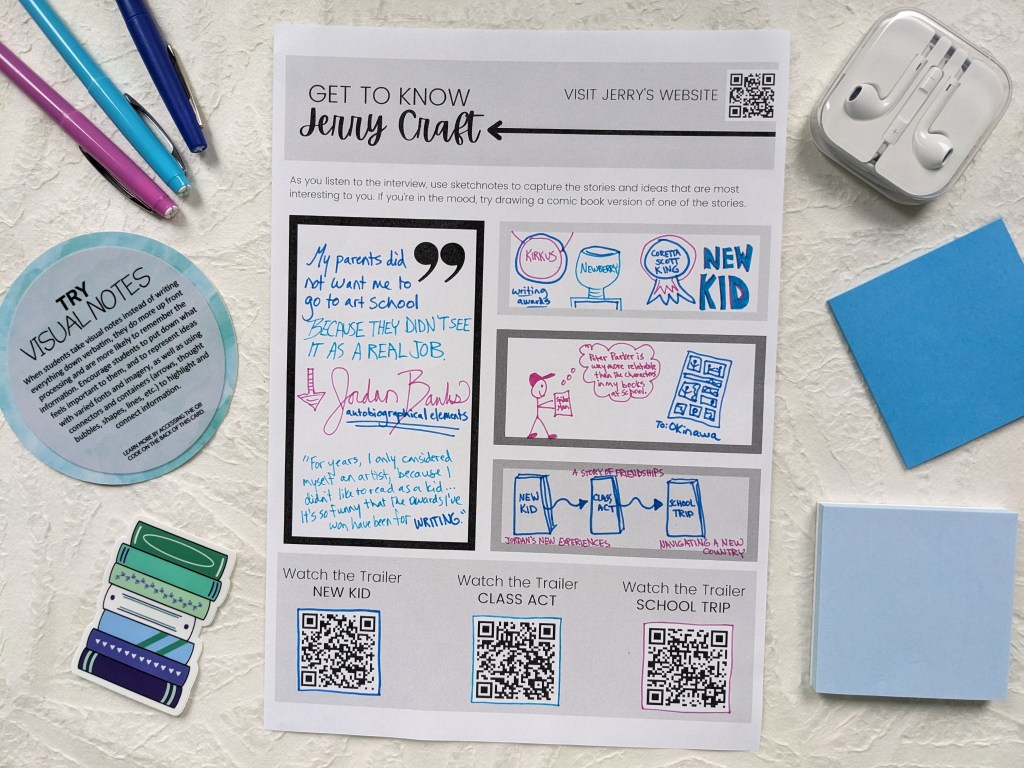 GET TO KNOW
Jerry Craft
VISIT JERRY'S WEBSITE
As you listen to the interview, use sketchnotes to capture the stories and ideas that are most
interesting to you. If you're in the mood, try drawing a comic book version of one of the stories.
My parents did
not want me to
go to art school
BECAUSE THEY DIDN'T SEE
IT AS A REAL JOB.
Jordan Banks
autobiographical elements
"For years, I only considered
myself an artist, because I
didn't like to read as a kid...
It's so funny that the awards I've
won have been for WRITING."
KIRKUS
writing
awards
NEWBERRY
CORETTA
SCOTT
KING
NEW
KID
Peter Parker is
way more relatable
than the characters
in my books
at school.
Spider
Man
To: Okinawa
A STORY OF FRIENDSHIPS
NEW
KID
CLASS
ACT
SCHOOL
TRIP
JORDAN'S NEW EXPERIENCES
NAVIGATING A NEW
COUNTRY
Watch the Trailer
NEW KID
Watch the Trailer
CLASS ACT
Watch the Trailer
SCHOOL TRIP
TRY
VISUAL NOTES
When students take visual notes instead of writing
everything down verbatim, they do more up front
processing and are more likely to remember the
information. Encourage students to put down what
feels important to them, and to represent ideas
with varied fonts and imagery, as well as using
connectors and containers (arrows, thought
bubbles, shapes, lines, etc.) to highlight and
connect information.
LEARN MORE BY ACCESSING THE QR
CODE ON THE BACK OF THIS CARD.